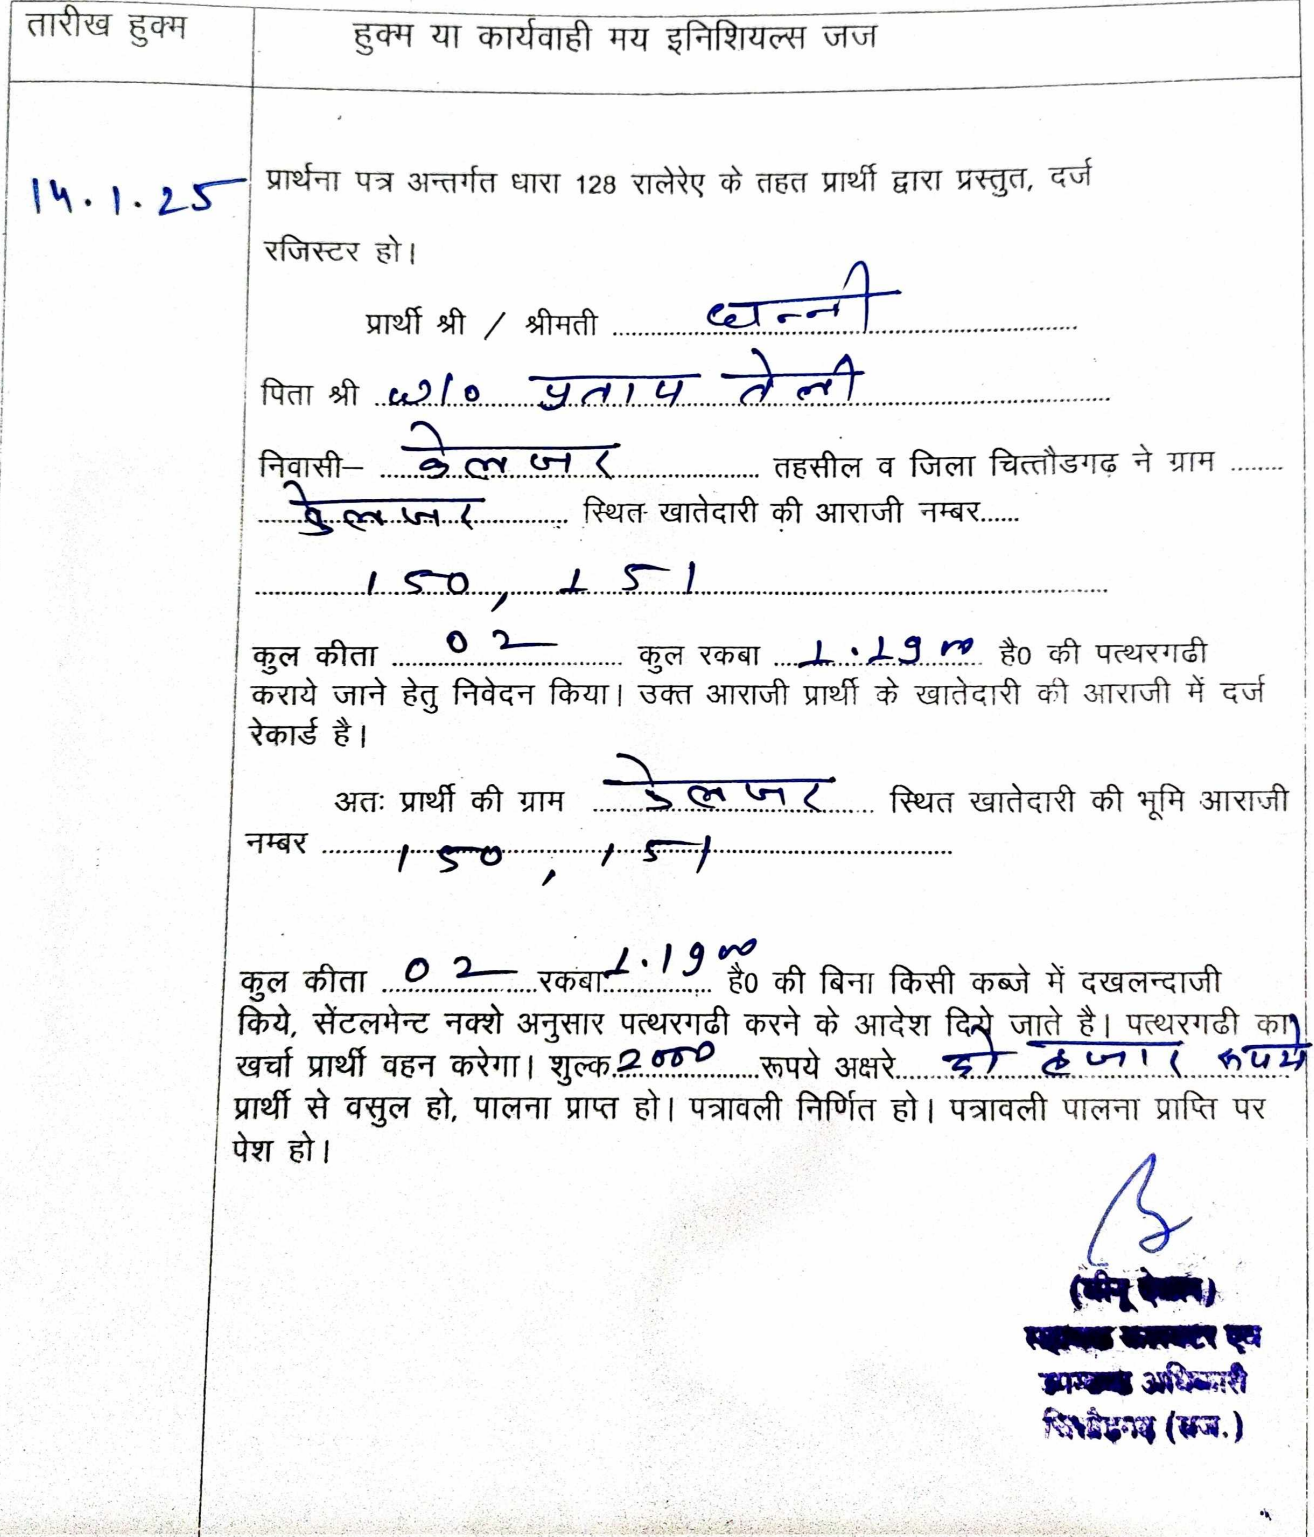 तारीख हुक्म
हुक्म या कार्यवाही मय इनिशियल्स जज
14.1.25
प्रार्थना पत्र अन्तर्गत धारा 128 रालेरेए के तहत प्रार्थी द्वारा प्रस्तुत, दर्ज
रजिस्टर हो।
प्रार्थी श्री / श्रीमती धन्नी
पिता श्री प्रताप तेली
निवासी– केलजर तहसील व जिला चित्तौडगढ़ ने ग्राम ........
केलजर स्थित खातेदारी की आराजी नम्बर......
150, 151
कुल कीता 02 कुल रकबा 1.19 है0 की पत्थरगढी
कराये जाने हेतु निवेदन किया। उक्त आराजी प्रार्थी के खातेदारी की आराजी में दर्ज
रेकार्ड है।
अतः प्रार्थी की ग्राम केलजर स्थित खातेदारी की भूमि आराजी
नम्बर 150, 151
कुल कीता 02 रकबा 1.19 है0 की बिना किसी कब्जे में दखलन्दाजी
किये, सेंटलमेन्ट नक्शे अनुसार पत्थरगढी करने के आदेश दिये जाते है। पत्थरगढी का
खर्चा प्रार्थी वहन करेगा। शुल्क 2000 रूपये अक्षरे दो हजार रूपये
प्रार्थी से वसुल हो, पालना प्राप्त हो। पत्रावली निर्णित हो। पत्रावली पालना प्राप्ति पर
पेश हो।
उपखण्ड अधिकारी
चित्तौड़गढ़ (राज.)